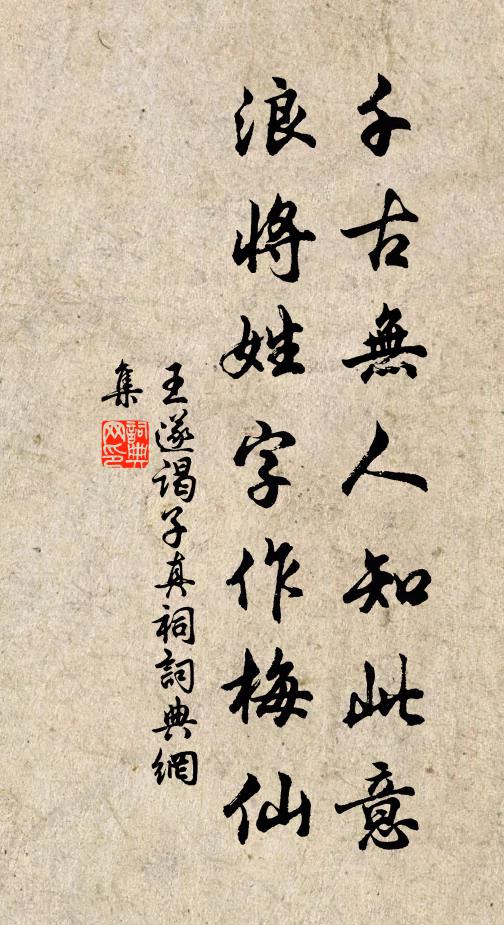 千古無人知此意
浪將姓字作梅仙
王遂謁子真祠詞典網
集
詞典
网印